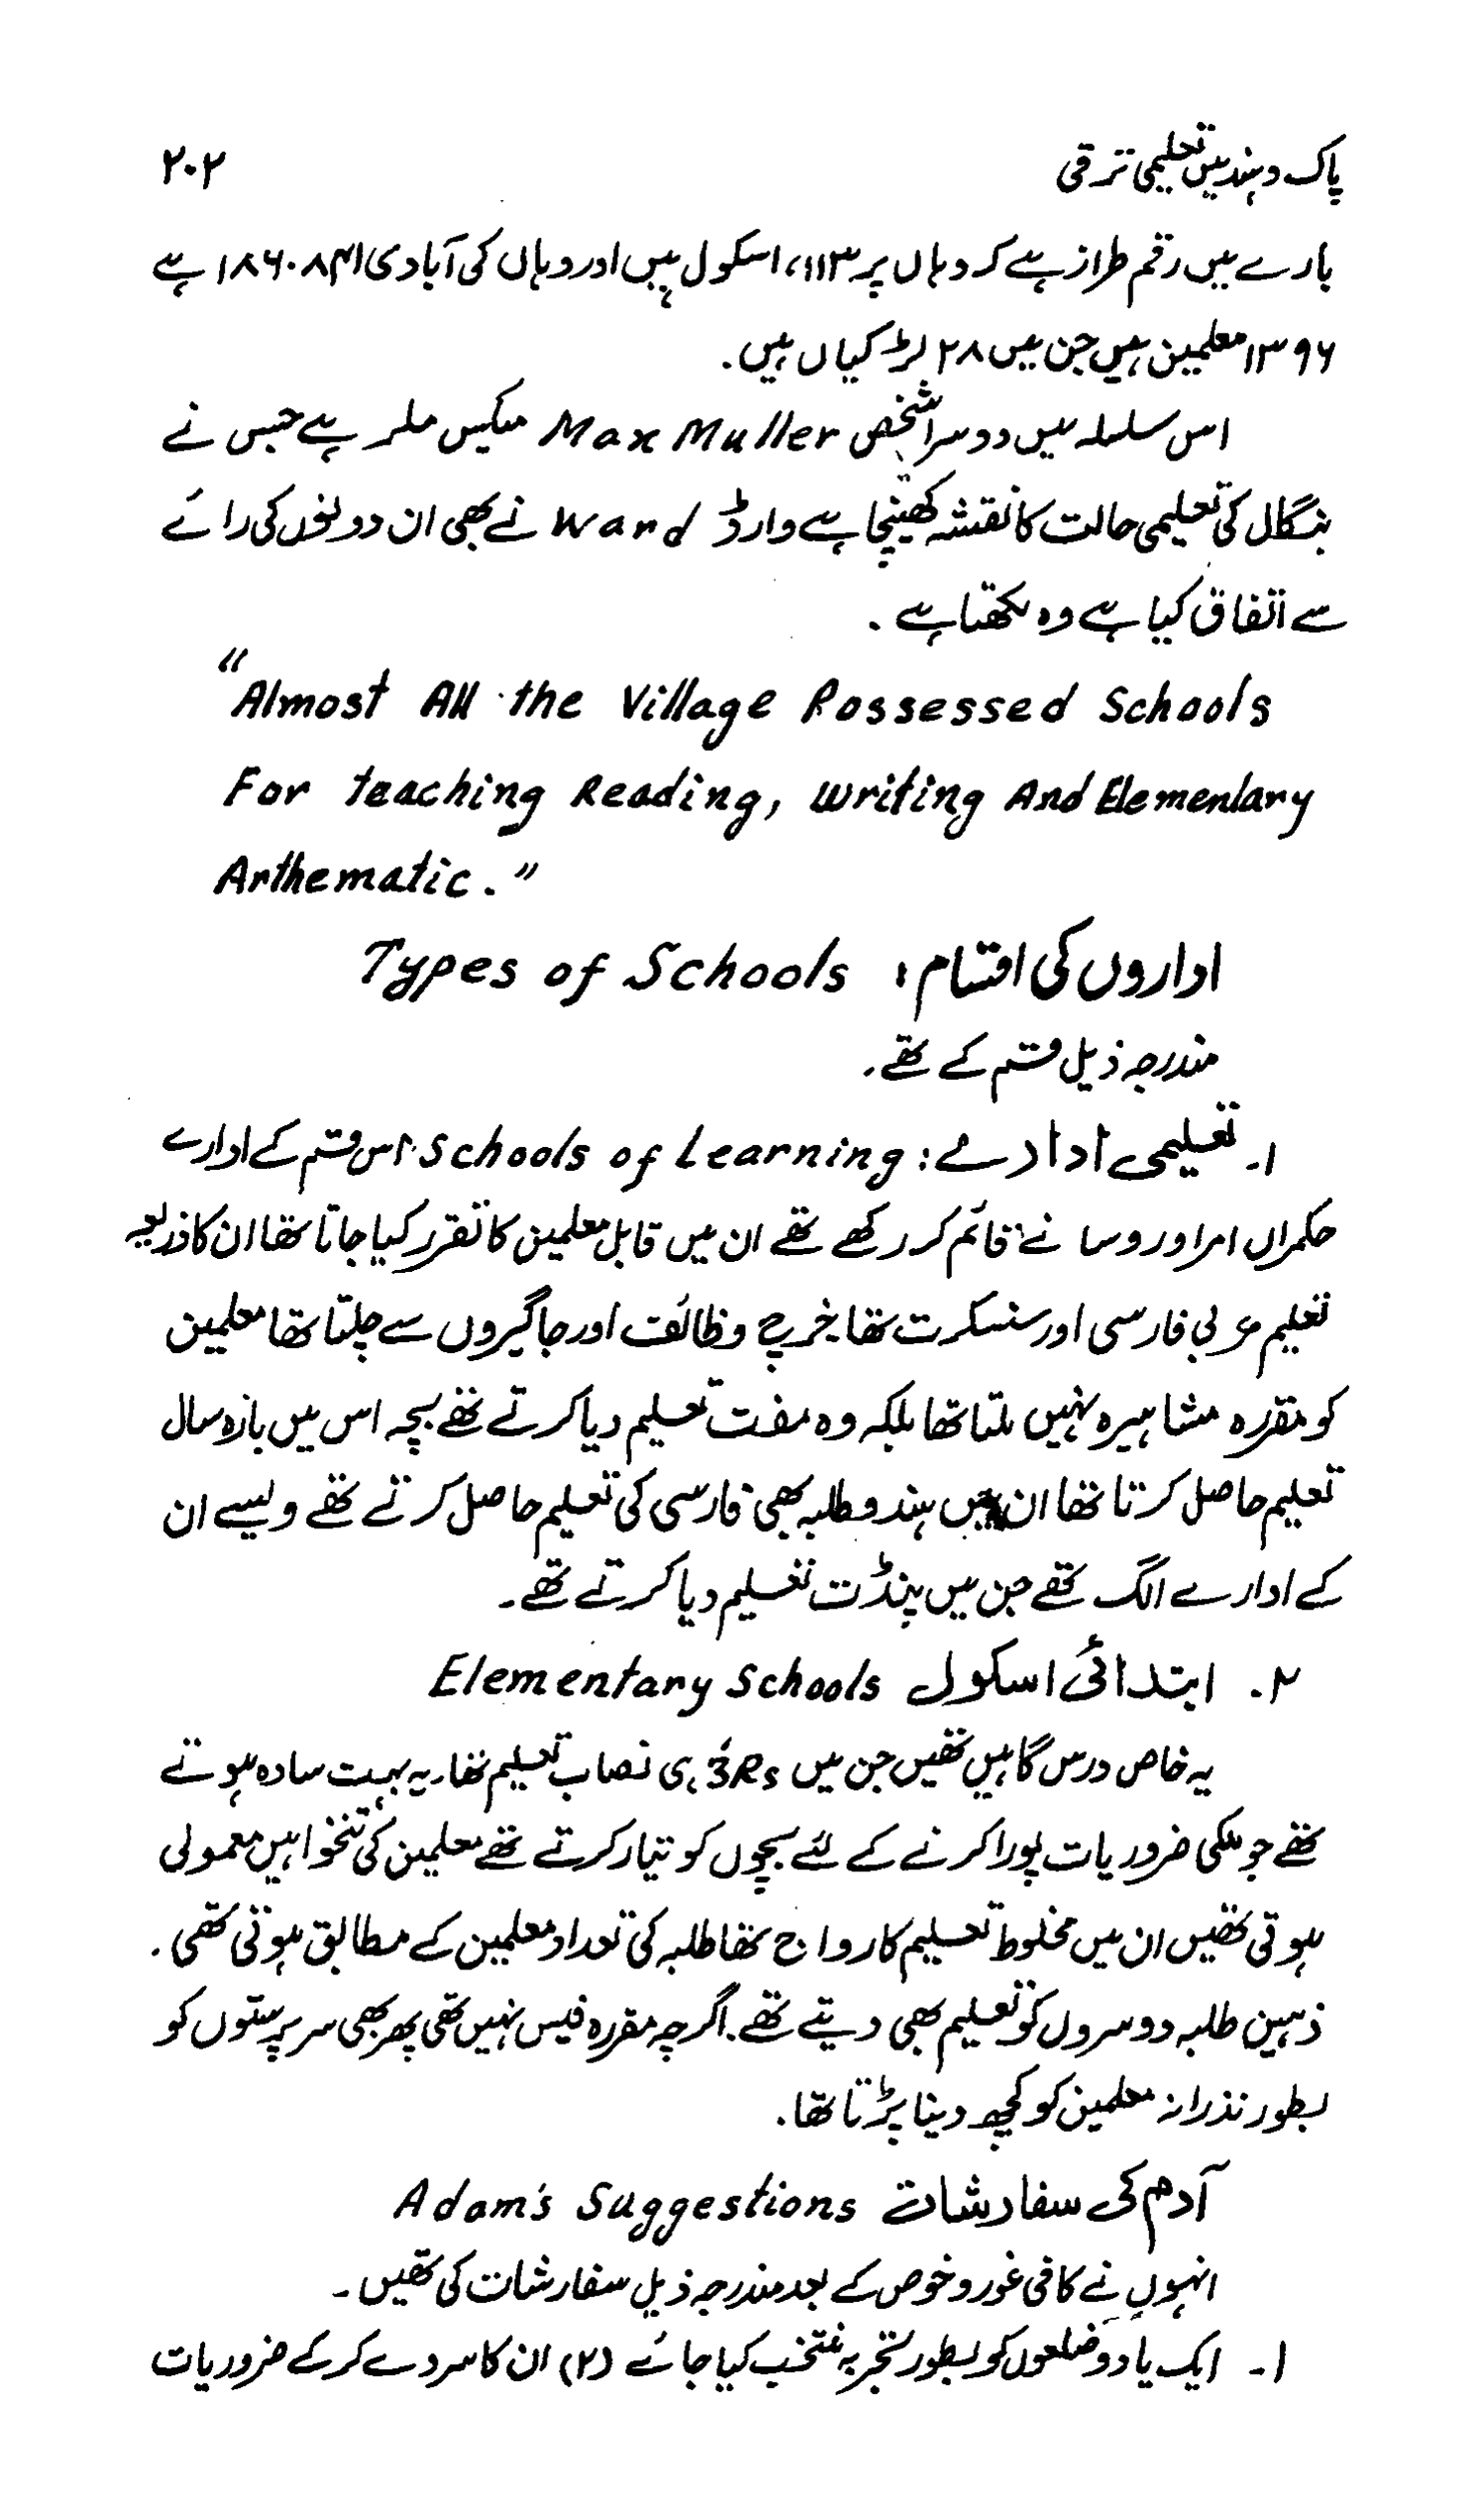 پاک و ہند میں تعلیمی ترقی ۲۰۲
بارے میں رقم طراز ہے کہ وہاں پر ۱۱۳، اسکول ہیں اور وہاں کی آبادی ۱۸۶۰۸۴۱ ہے
۱۳۹۶ معلمین ہیں جن میں ۲۸ لڑکیاں ہیں.
اس سلسلہ میں دوسرا شخص Max Muller میکیس ملر ہے جس نے
بنگال کی تعلیمی حالت کا نقشہ کھینچا ہے وارڈ Wand نے بھی ان دونوں کی رائے
سے اتفاق کیا ہے وہ لکھتا ہے.
"Almost All the Village Possessed Schools
For teaching Reading, writing And Elementary
Arthematic."
اداروں کی اقسام: Types of Schools
مندرجہ ذیل قسم کے تھے.
۱- تعلیمی ادارے: Schools of Learning اس قسم کے ادارے
حکمراں امرا و روسا نے قائم کر رکھے تھے ان میں قابل معلمین کا تقرر کیا جاتا تھا ان کا ذریعہ
تعلیم عربی فارسی اور سنسکرت تھا خرچ وظائف اور جاگیروں سے چلتا تھا معلمین
کو مقررہ مشاہیرہ نہیں ملتا تھا بلکہ وہ مفت تعلیم دیا کرتے تھے بچہ اس میں بارہ سال
تعلیم حاصل کرتا تھا ان میں ہندو طلبہ بھی فارسی کی تعلیم حاصل کرتے تھے ویسے ان
کے ادارے الگ تھے جن میں پنڈت تعلیم دیا کرتے تھے۔
۲. ابتدائی اسکول Elementary Schools
یہ خاص درس گاہیں تھیں جن میں 3Rs ہی نصاب تعلیم تھا یہ بہت سادہ ہوتے
تھے جو ملکی ضروریات پورا کرنے کے لئے بچوں کو تیار کرتے تھے معلمین کی تنخواہیں معمولی
ہوتی تھیں ان میں مخلوط تعلیم کا رواج تھا طلبہ کی تعداد معلمین کے مطابق ہوتی تھی.
ذہین طلبہ دوسروں کو تعلیم بھی دیتے تھے. اگرچہ مقررہ فیس نہیں تھی پھر بھی سرپرستوں کو
بطور نذرانہ معلمین کو کچھ دینا پڑتا تھا.
آدم کی سفارشات Adam's Suggestions
انہوں نے کافی غور و خوص کے بعد مندرجہ ذیل سفارشات کی تھیں۔
۱- ایک یا دو ضلعوں کو بطور تجربہ منتخب کیا جائے (۲) ان کا سروے کر کے ضروریات